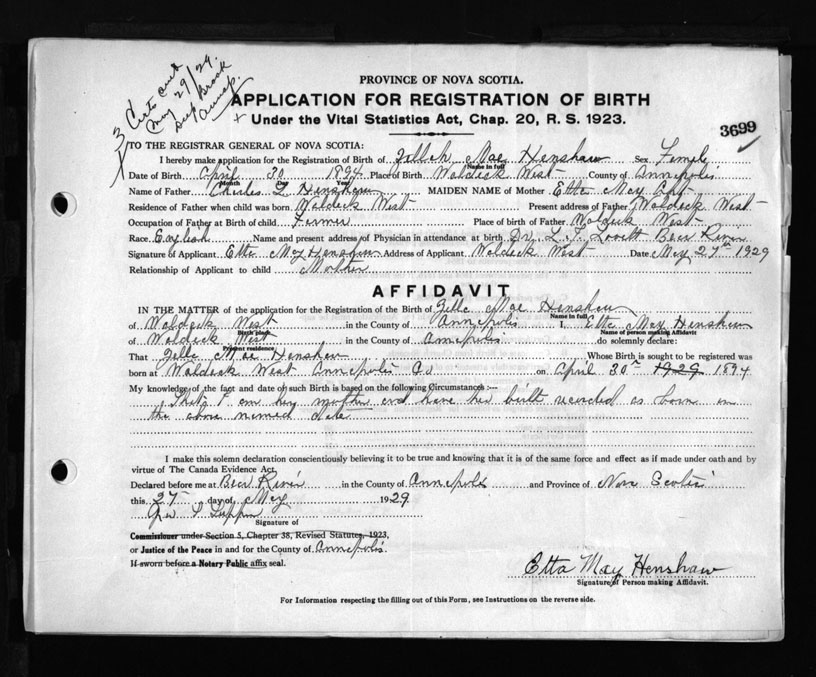 3 Certs and
May 29/29.
Deep Brook
Annap.
PROVINCE OF NOVA SCOTIA.
APPLICATION FOR REGISTRATION OF BIRTH
Under the Vital Statistics Act, Chap. 20, R. S. 1923.
3699
TO THE REGISTRAR GENERAL OF NOVA SCOTIA:
I hereby make application for the Registration of Birth of Mae Henshaw Sex Female
Name in full
Date of Birth April 30 1894 Place of Birth Waldeck West County of Annapolis
Month Day Year
Name of Father Charles L Henshaw MAIDEN NAME of Mother Etta May
Residence of Father when child was born Waldeck West Present address of Father Waldeck West
Occupation of Father at Birth of child Farmer Place of birth of Father Waldeck West
Race English Name and present address of Physician in attendance at birth Dr. L. J. Lovett Bear River
Signature of Applicant Etta May Henshaw Address of Applicant Waldeck West Date May 27th 1929
Relationship of Applicant to child Mother
AFFIDAVIT
IN THE MATTER of the application for the Registration of the Birth of Mae Henshaw
Name in full
of Waldeck West in the County of Annapolis I, Etta May Henshaw
Birth place Name of person making Affidavit
of Waldeck West in the County of Annapolis do solemnly declare:
Present residence
That Mae Henshaw Whose Birth is sought to be registered was
born at Waldeck West Annapolis Co on April 30th 1929 1894
My knowledge of the fact and date of such Birth is based on the following Circumstances :—
That I am her mother and have her birth recorded as born on
the above named date
I make this solemn declaration conscientiously believing it to be true and knowing that it is of the same force and effect as if made under oath and by
virtue of The Canada Evidence Act.
Declared before me at Bear River in the County of Annapolis and Province of Nova Scotia
this 27 day of May 1929
Signature of
Commissioner under Section 5, Chapter 38, Revised Statutes, 1923,
or Justice of the Peace in and for the County of Annapolis.
If sworn before a Notary Public affix seal.
Etta May Henshaw
Signature of Person making Affidavit.
For Information respecting the filling out of this Form, see Instructions on the reverse side.